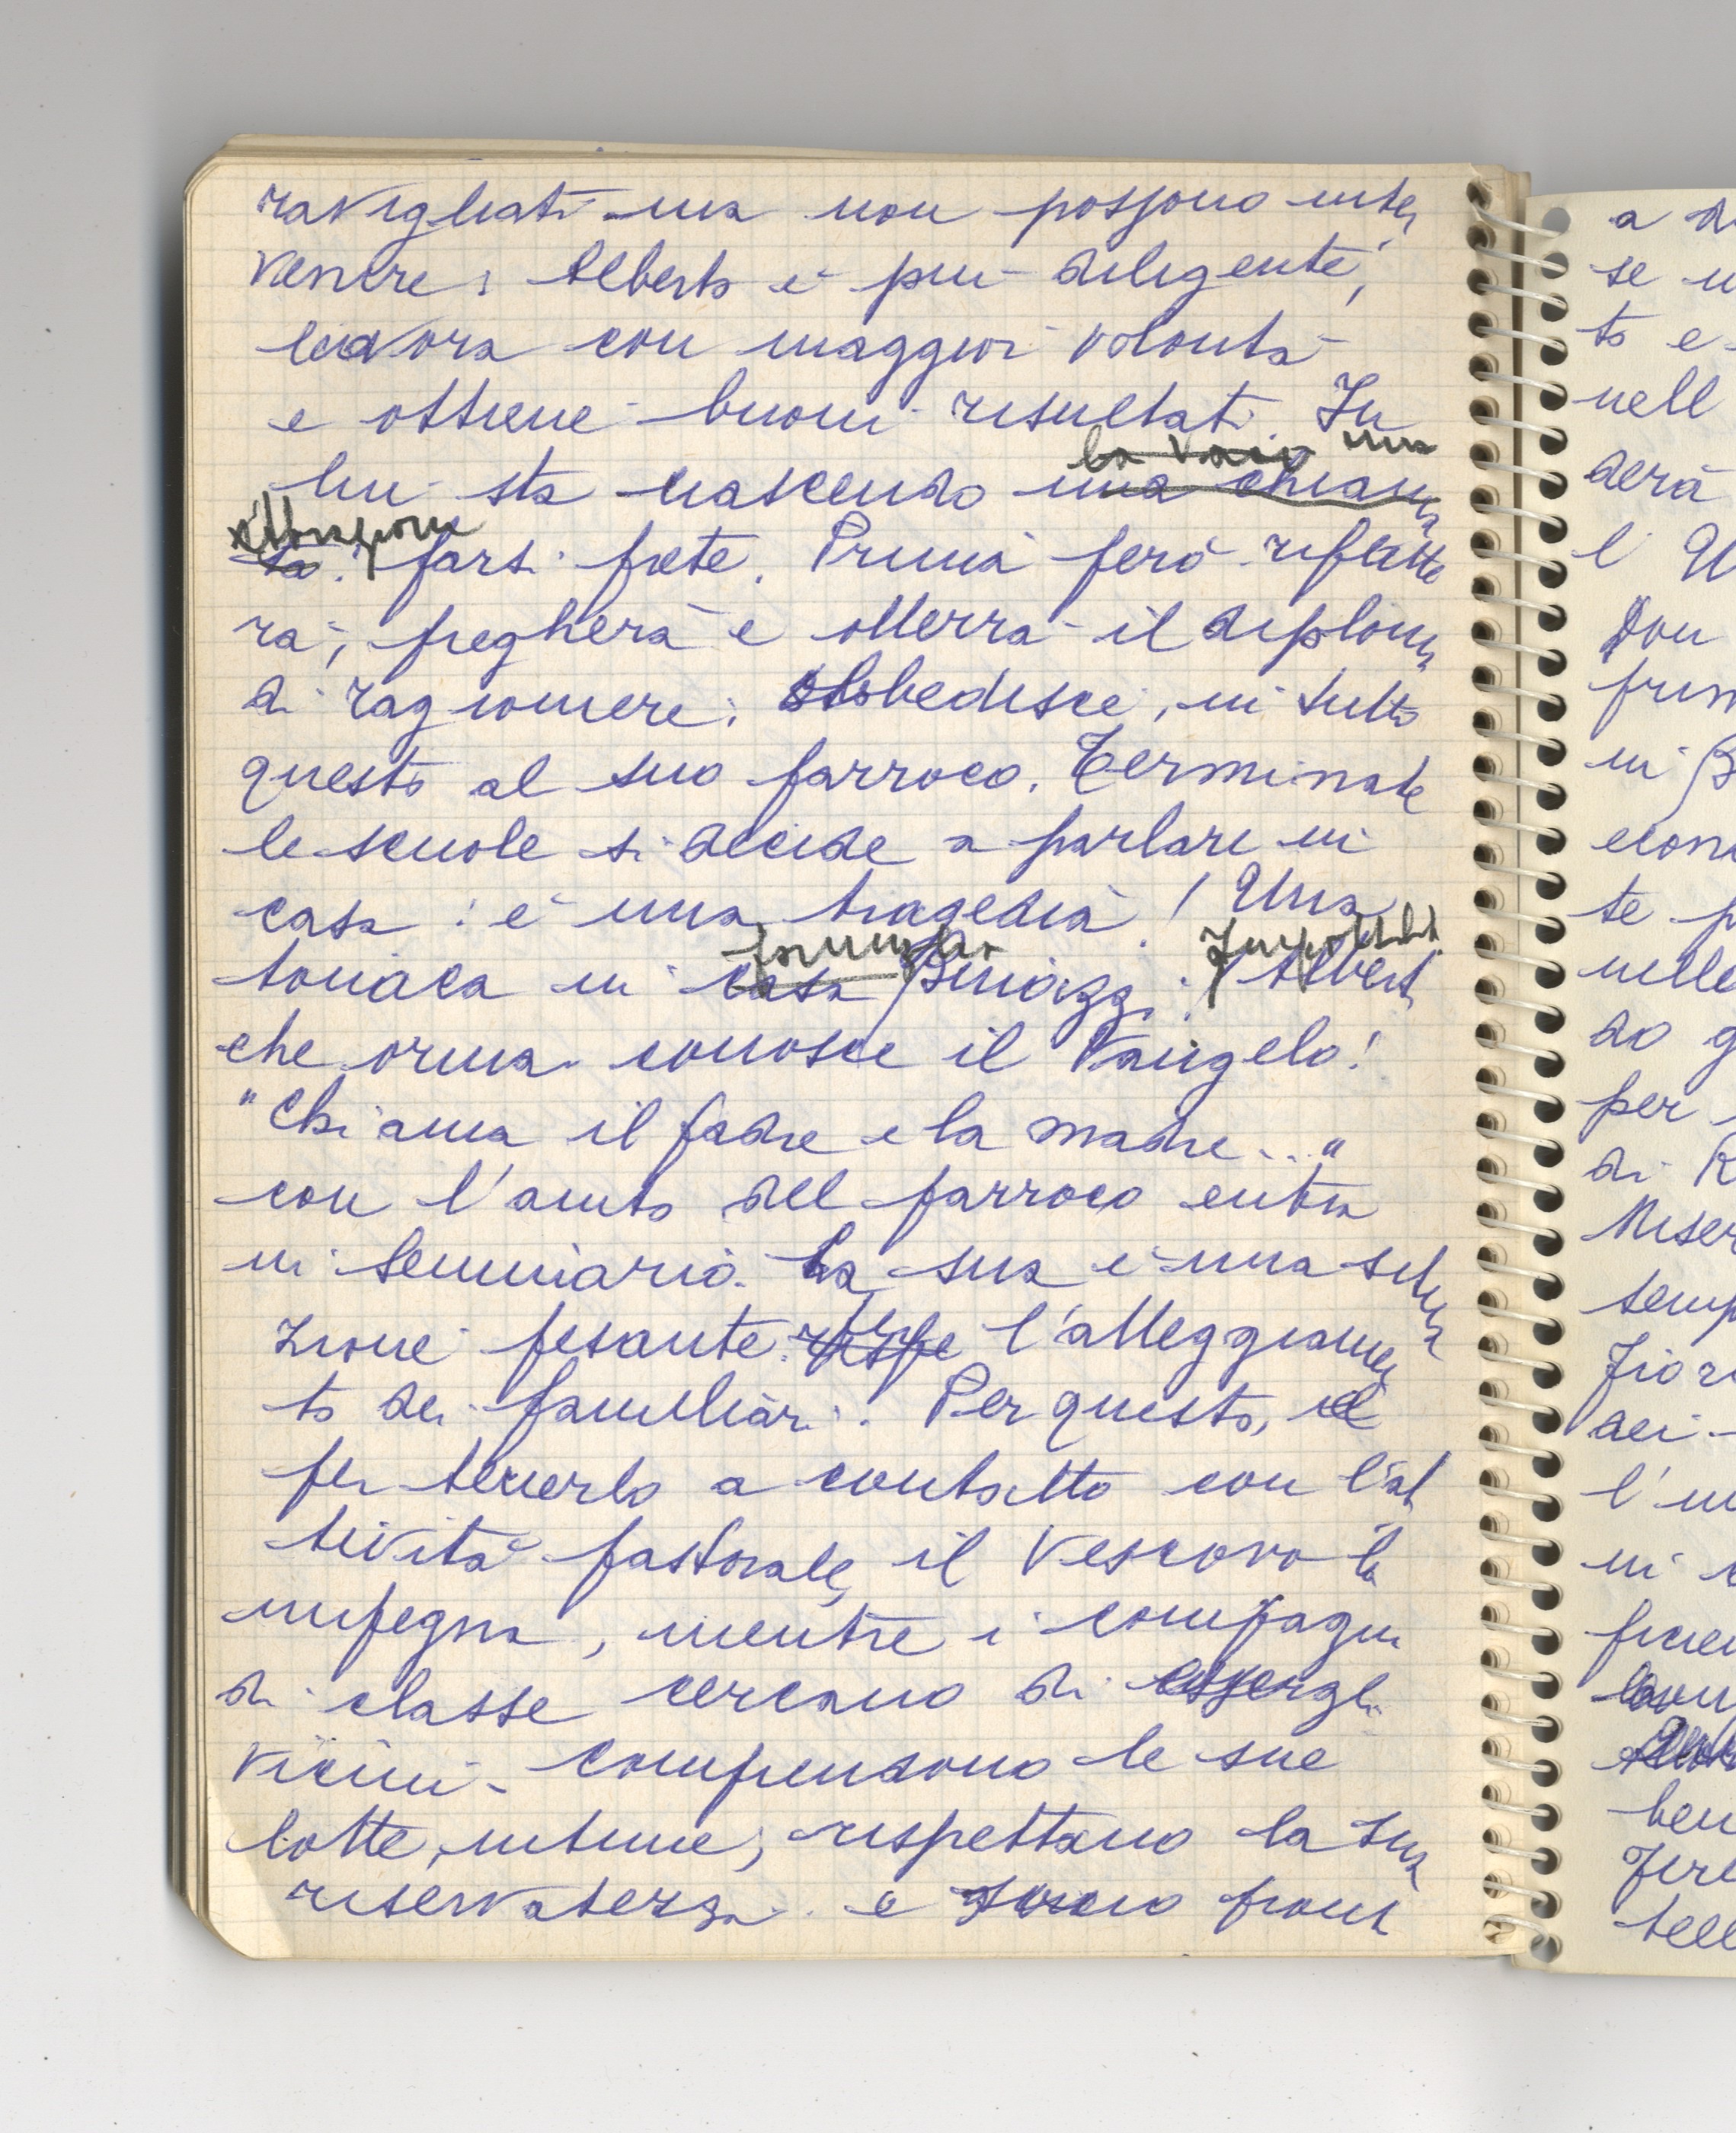 ravigliati ma non possono inter
venire: Alberto è più diligente,
lavora con maggior volontà
e ottiene buoni risultati. In
la voce una
lui sta nascendo una chiama
attrazione
ta: farsi prete. Prima però riflette
rà, pregherà e otterrà il diploma
di ragioniere. Obbedisce, in tutto
questo al suo parroco. Terminate
le scuole si decide a parlare in
casa: è una tragedia! Una
famiglia Impossibile
tonaca in casa Benazzi! Albert
che ormai conosce il Vangelo!
"Chiama il padre e la madre..."
con l'aiuto del parroco entra
in Seminario. La sua è una situa
per
zione pesante l'atteggiamen
to dei familiari. Per questo,
per tenerlo a contatto con l'at
tività pastorale, il Vescovo lo
impegna, mentre i compagni
di classe cercano di essergli
vicini. Comprendono le sue
lotte intime, rispettano la sua
riservatezza e sono pront
a
se
to e
nell
derà
l'
Don
in
te
nelle
do
per
di
Miser
semp
dei
l'
in
ben